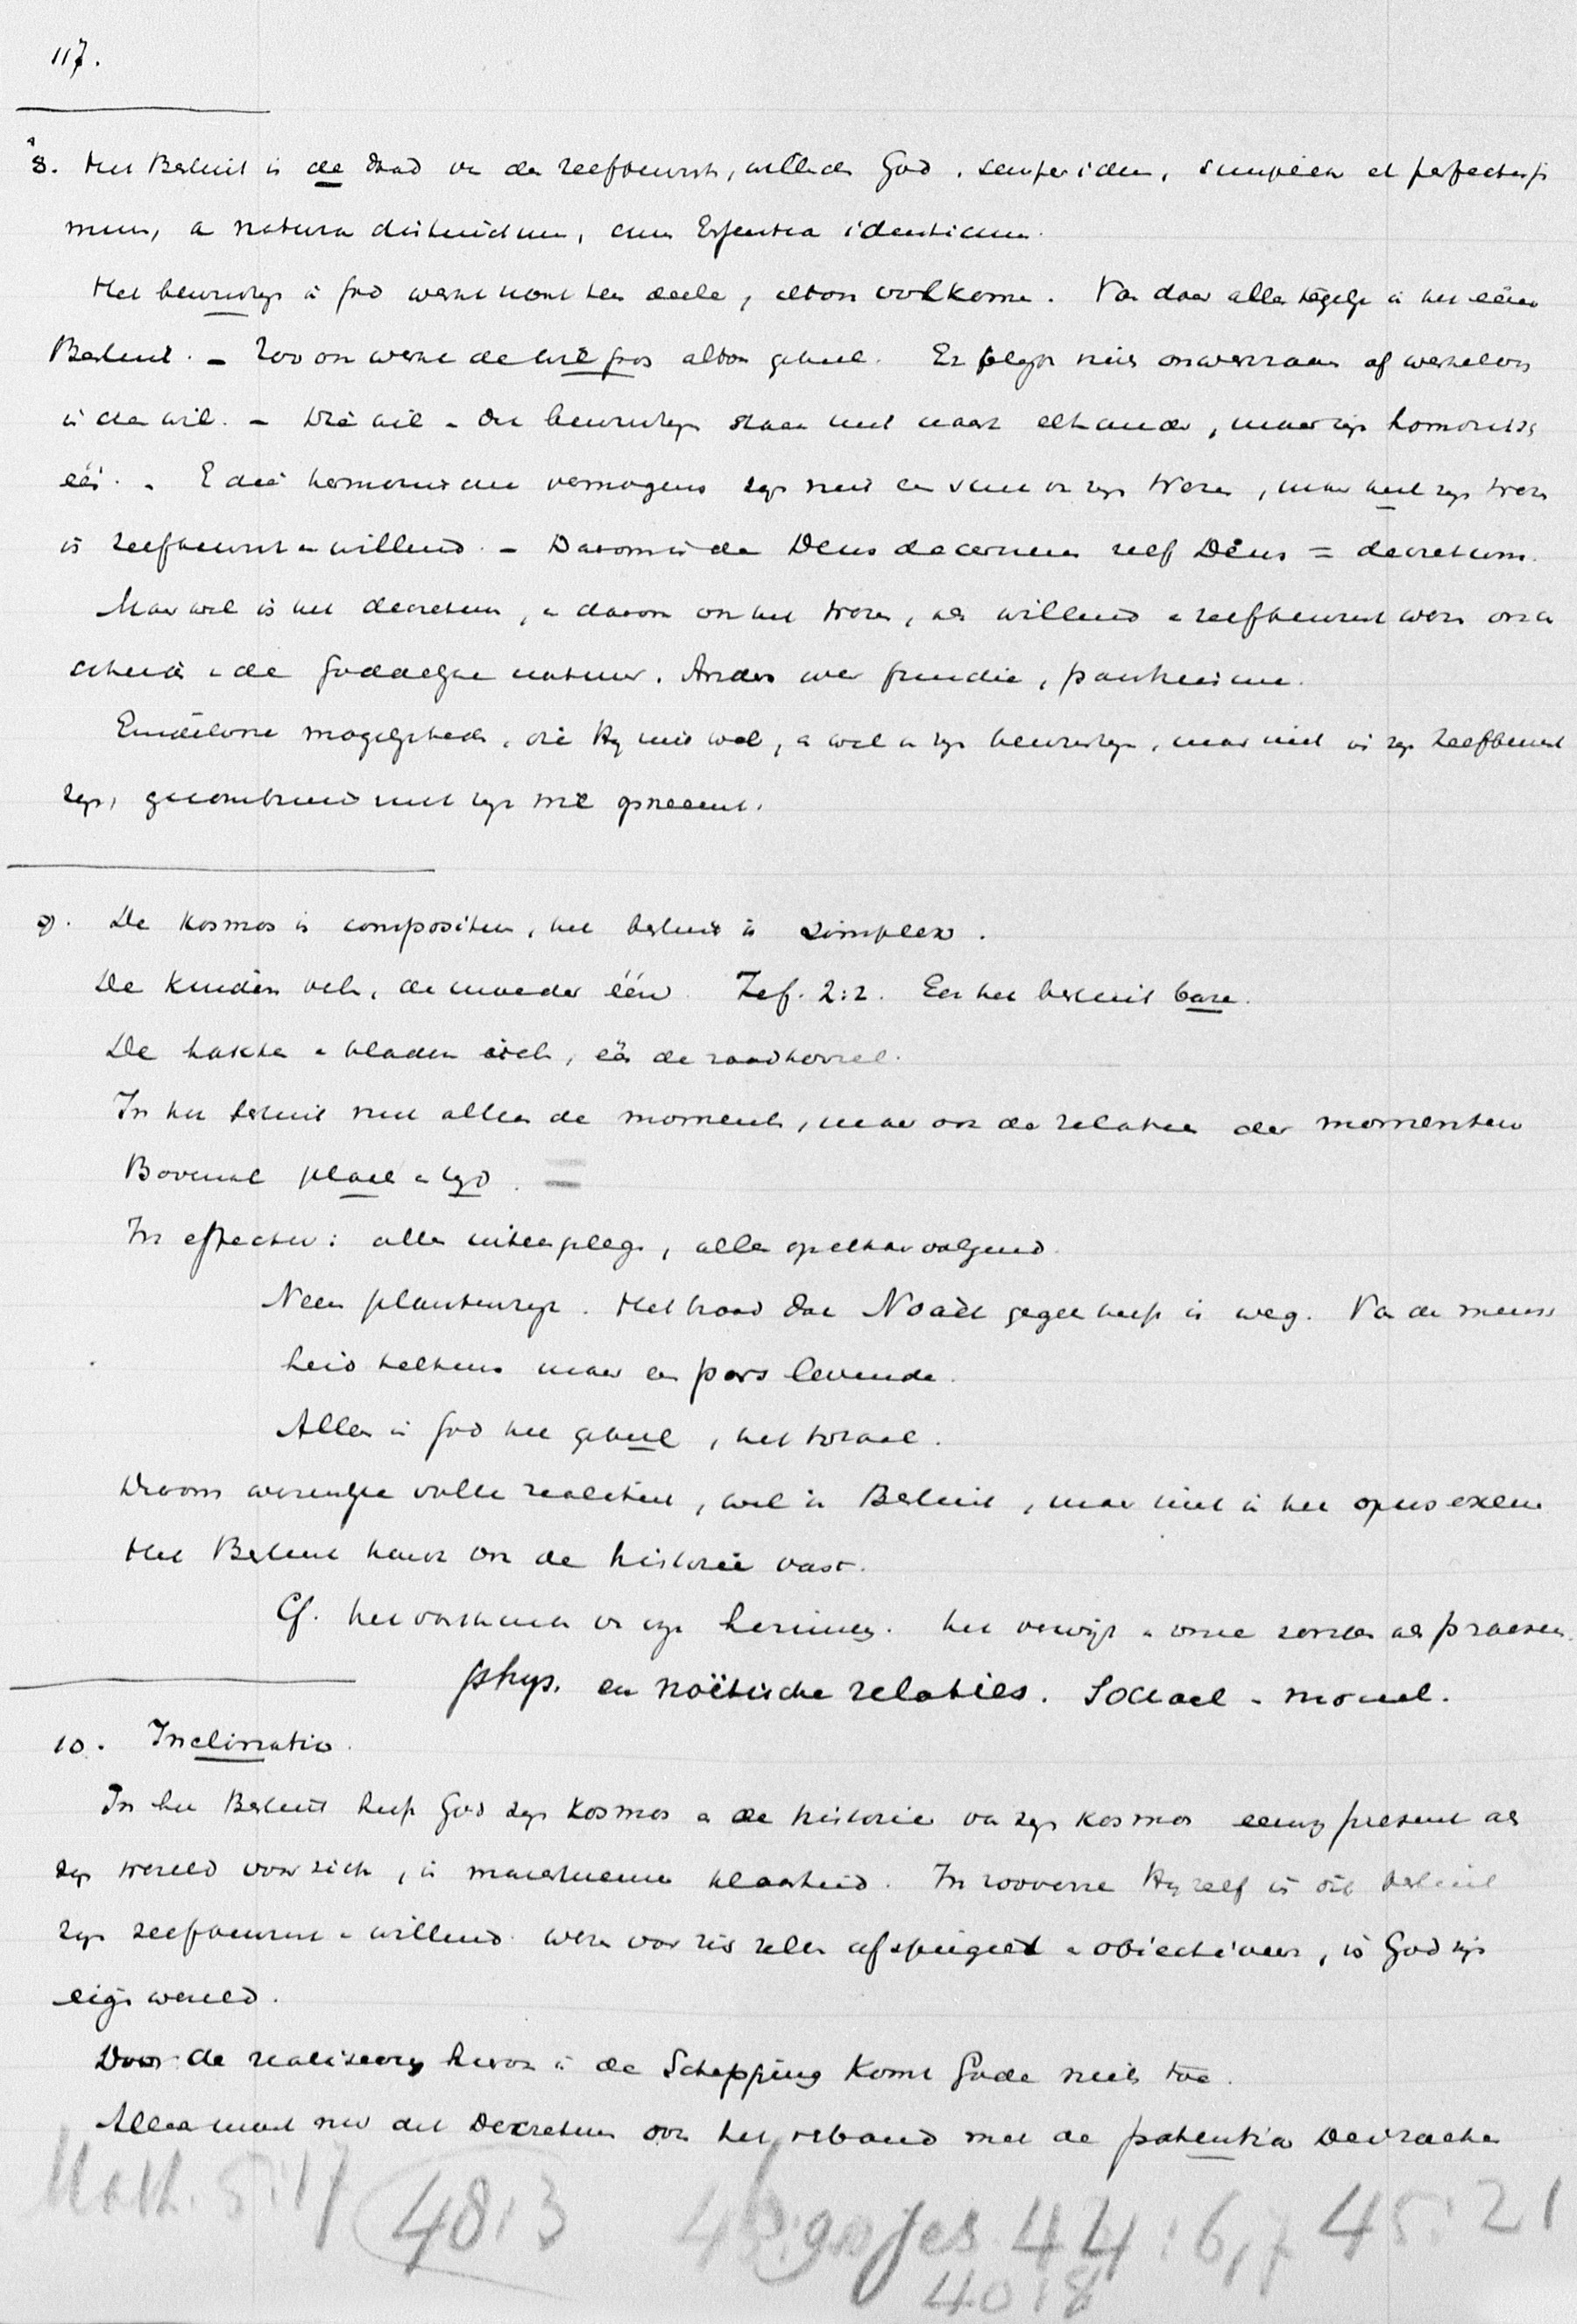 117.
8. Het Besluit is de daad v. de zelfbewust, willende God, semper idem, simplex et perfectissi
mum, a natura distinctum, cum Essentia identicum.
Het bewustzijn in God werkt nooit ten deele, altoos volkomen. Van daar alles tegelijk in het ééne
Besluit. – Zoo ook werkt de wil Gods altoos geheel. Er is niets onwerkzaam of werkeloos
in den wil. – Die wil en dit bewustzijn staan niet naast elkander, maar zijn harmonisch
één. – En deze harmonische vermogens zijn niet een stuk van zijn Wezen, maar heel zijn Wezen
is zelfbewust en willend. – Daarom is de Deus decernens zelf Deus = decretum.
Maar wel is het decretum, en daarom ook het Wezen, als willend en zelfbewust wezen onder
scheiden de Goddelijke natuur. Anders pantheisme.
Eindelooze mogelijkheden, die Hij niet wil, en wel in zijn bewustzijn, maar niet in zijn zelfbewust
zijn, gecombineerd met zijn wil
9. De Kosmos is compositum, het besluit is simplex.
De kinderen vele, de moeder één. Zef. 2:2. Eer het besluit bare.
De takken en bladen vele, één de zaadkorrel.
In het besluit niet alleen de momenten, maar ook de relatien der momenten
Bovenal plaats en tijd.
In effectu: alles uiteengelegd, alles op elkaar volgend.
Neem plantenrijk. Het brood dat Noach gegeten heeft is weg. Van de mensch
heid telkens maar een pars levende.
Alleen in God het geheel, het totaal.
Daarom wezenlijke volle realiteit, wel in Besluit, maar niet in het opus exeun
Het Besluit houdt ook de historie vast.
Cf. het vasthouden v. onze herinnering. het verwijt onze zonden als praesen
phys. en noëtische relaties. Sociaal – moreel.
10. Inclinatio.
In het Besluit heeft God zijn Kosmos en de historie van zijn Kosmos eeuwig present als
zijn wereld voor zich, in klaarheid. In zooverre Hij zelf in dit besluit
zijn zelfbewust en willend wezen voor zich zelven afspiegelt en objectiveert, is God zijn
eigen wereld.
Door de realiseering hiervan in de Schepping komt Gode niets toe.
Alleen moet nu dit Decretum ook het verband met de potentia
Matth. 5:17 48:3 Jes. 44:6,7 45:21
40:8